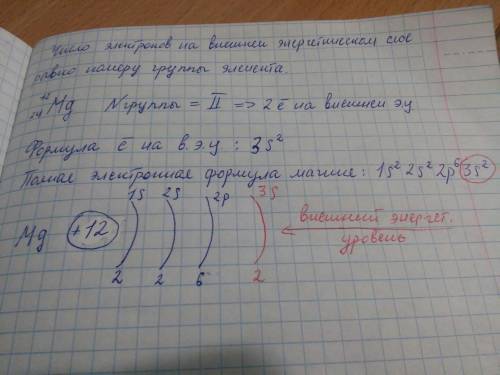 Число электронов на внешнем энергетическом слое
равно номеру группы элемента.
Mg N группы = II => 2 ē на внешнем э.у
Формула ē на в.э.у : 3s²
Полная электронная формула магние: 1s² 2s² 2p⁶ 3s²
1s 2s 2p 3s
Mg +12
внешний энергет.
уровень
2 2 6 2